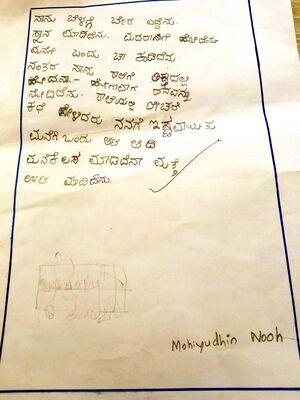 ನಾನು ಬೆಳ್ಳಗೆ ಬೇಗ ಎದ್ದೆನು.
ಸ್ನಾನ ಮಾಡಿದೆನು. ಮದರಸಾಗೆ ಹೋದೆನು
ಮನೆಗೆ ಬಂದು ಚಾ ಕುಡಿದೆನು
ನಂತರ ನಾನು ಶಾಲೆಗೆ
ಹೋದೆನು. ಹೋಗುವಾಗ
ನೋಡಿದೆನು. ಶಾಲೆಯಲ್ಲಿ ಟೀಚರ್
ಕಥೆ ಹೇಳಿದರು ನನಗೆ ಇಷ್ಟವಾಯಿತು
ಮನೆಗೆ ಬಂದು ಆಟ ಆಡಿ
ಮನೆಕೆಲಸ ಮಾಡಿದೆನು ಮತ್ತೆ
ಊಟ ಮಾಡಿದೆನು.
Mohiyudhin Nooh